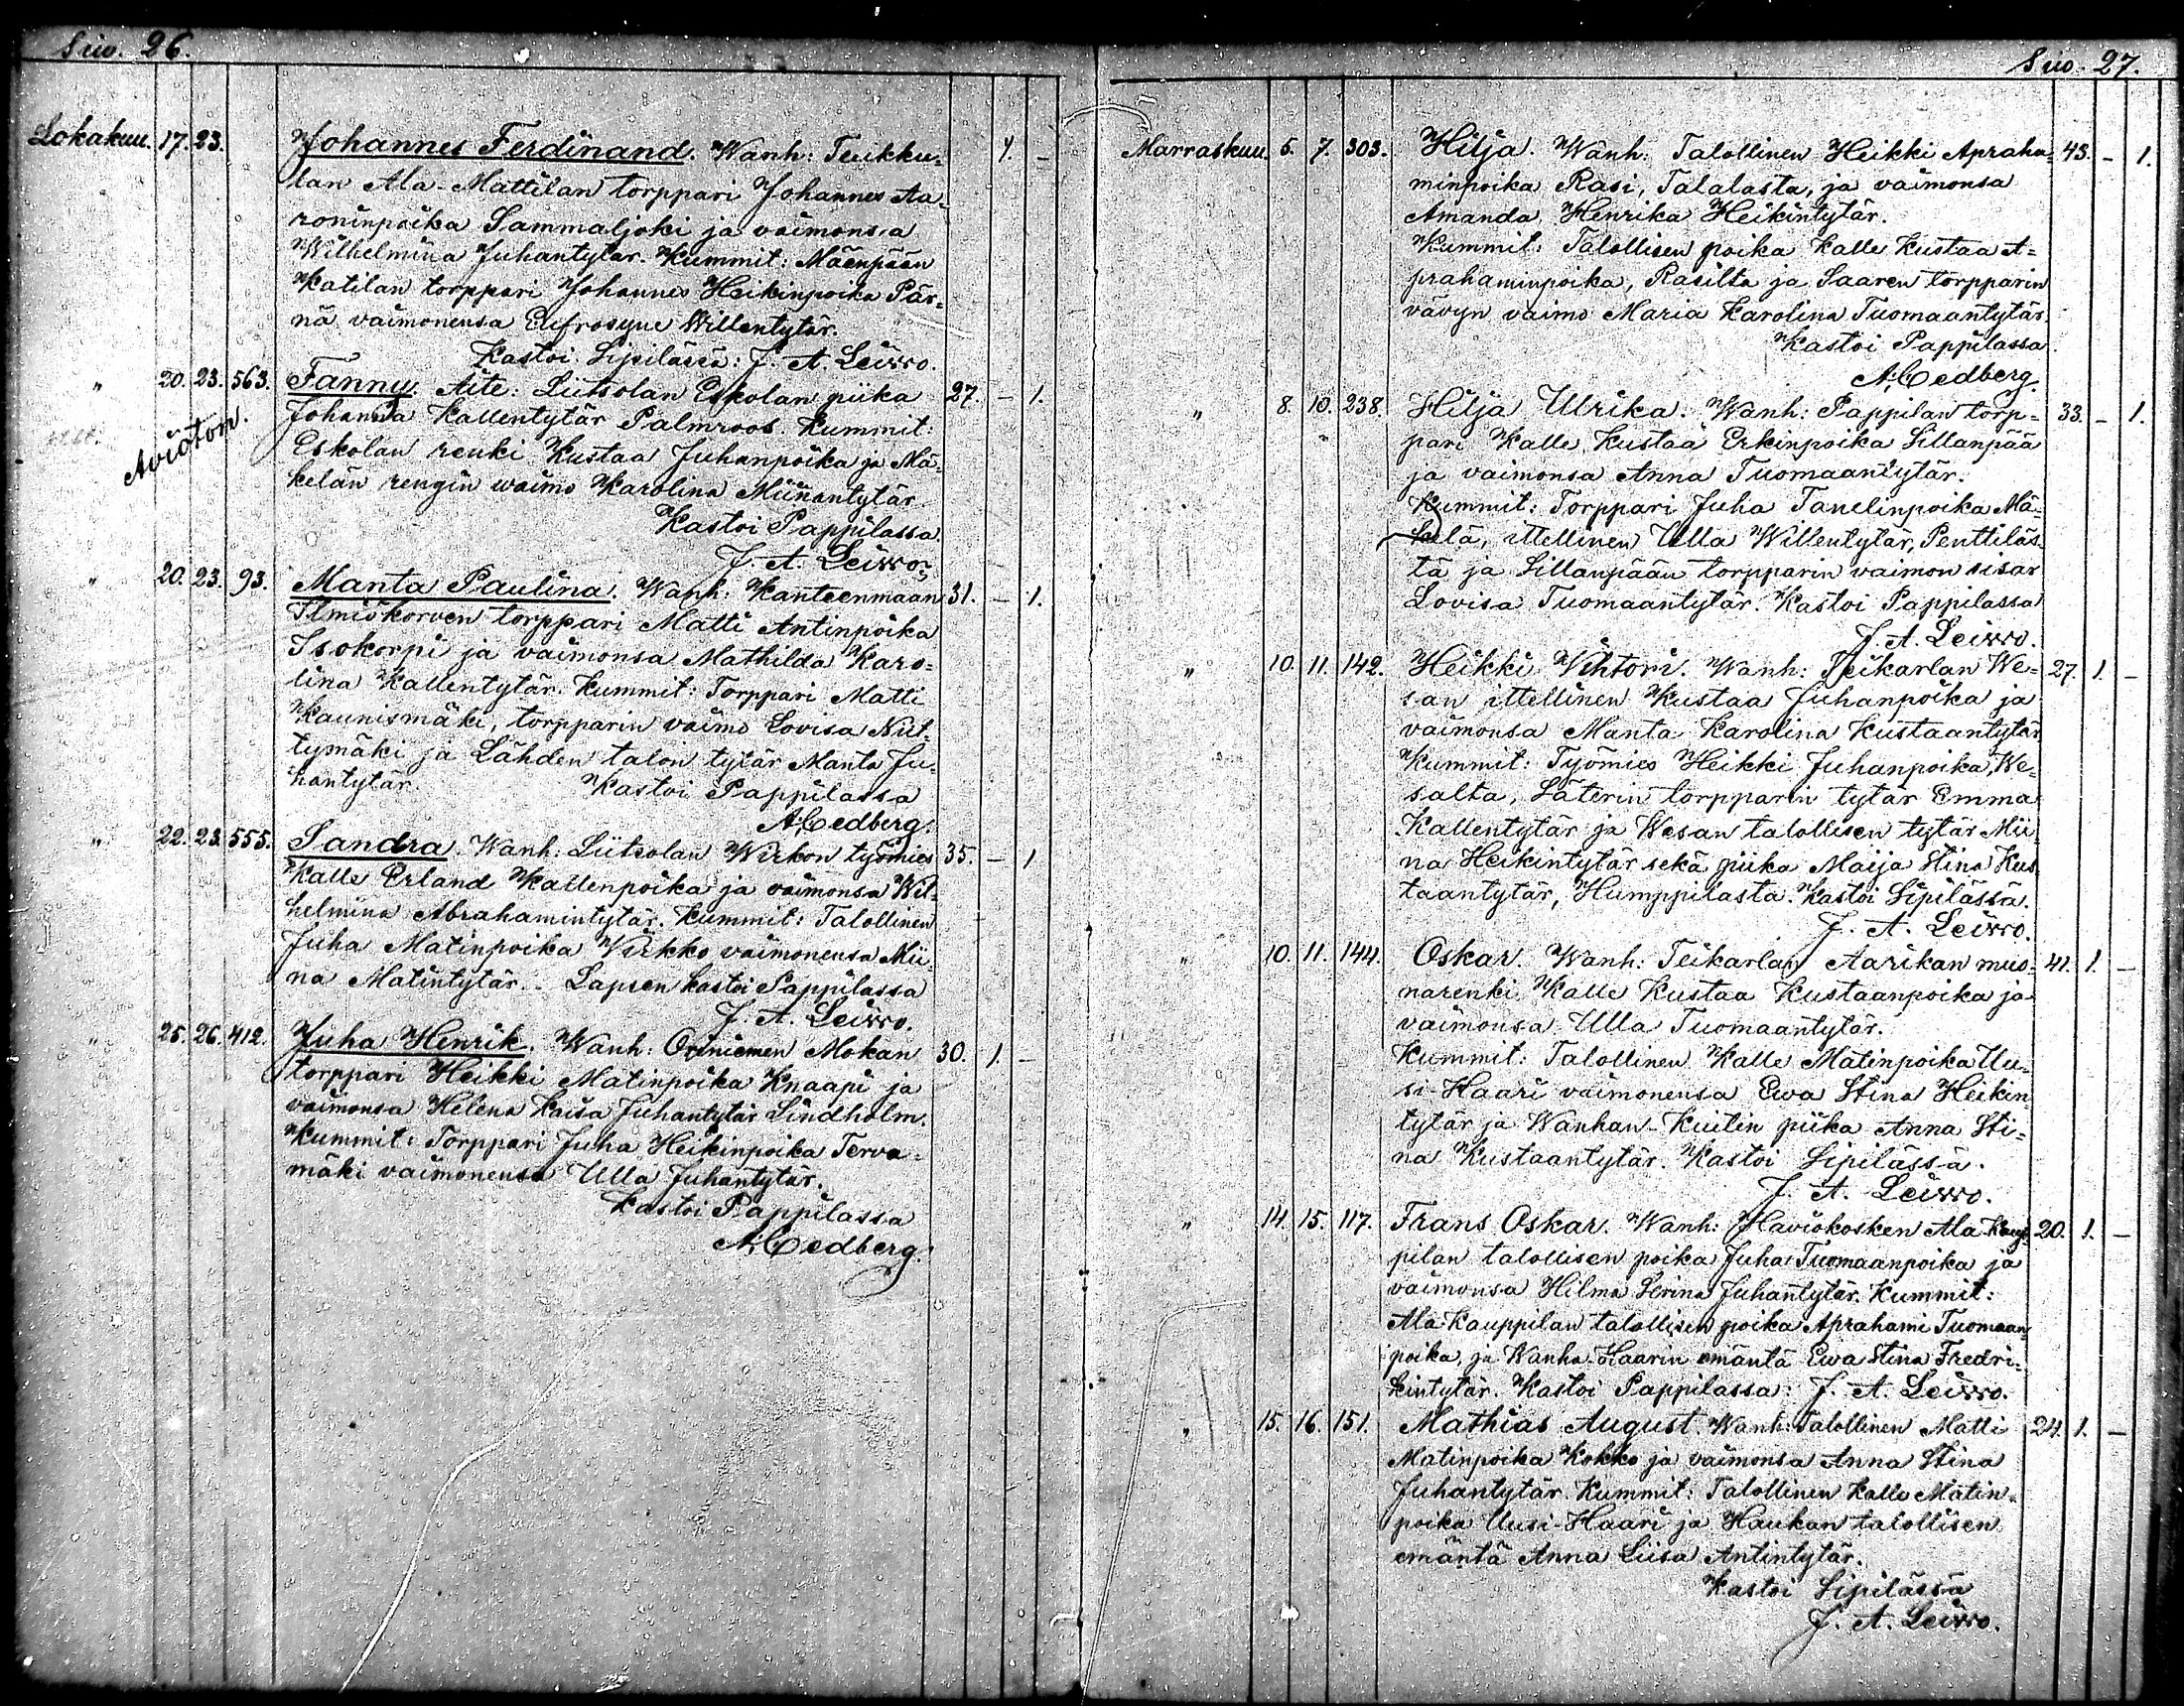 Siv. 26.
Lokakuu. 17. 23. Johannes Ferdinand. Wanh: Teukku- 1. -
lan Ala-Mattilan torppari Johannes Aa-
roninpoika Sammaljoki ja vaimonsa
Wilhelmina Juhantytär. Kummit: Mäenpään
Katilan torppari Johannes Heikinpoika Pär-
nä vaimonensa Eufrosyne Willentytär.
Kastoi Sipilässä: J. A. Leivo.
" 20. 23. 563. Fanny. Äite: Liitsolan Eskolan piika 27. - 1.
Aviöton. Johanna Kallentytär Palmroos. Kummit:
Eskolan renki Kustaa Juhanpoika ja Mä-
kelän rengin waimo Karolina Miinantytär.
Kastoi Pappilassa
J. A. Leivo.
" 20. 23. 93. Manta Paulina. Wanh: Kanteenmaan 31. - 1.
Ilmiökorven torppari Matti Antinpoika
Isokorpi ja vaimonsa Mathilda Karo-
lina Kallentytär. Kummit: Torppari Matti
Kaunismäki, torpparin vaimo Lovisa Niit-
tymäki ja Lähden talon tytär Manta Ju-
hantytär. Kastoi Pappilassa
A. Cedberg.
" 22. 23. 555. Sandra. Wanh: Liitsolan Wirkon työmies 35. - 1
Kalle Erland Kallenpoika ja vaimonsa Wil-
helmina Abrahamintytär. Kummit: Talollinen
Juha Matinpoika Virkko vaimonensa Mii-
na Matintytär. - Lapsen kastoi Pappilassa
J. A. Leivo.
" 25. 26. 412. Juha Henrik. Wanh: Oriniemen Mokan 30. 1. -
torppari Heikki Matinpoika Knaapi ja
vaimonsa Helena Kaisa Juhantytär Lindholm.
Kummit: Torppari Juha Heikinpoika Terva-
mäki vaimonensa Ulla Juhantytär.
Kastoi Pappilassa
A. Cedberg.
Siv. 27.
Marraskuu. 5. 7. 303. Hilja. Wanh: Talollinen Heikki Apraha- 43. - 1.
minpoika Rasi, Talalasta, ja vaimonsa
Amanda Henrika Heikintytär.
Kummit: Talollisen poika Kalle Kustaa A-
prahaminpoika, Rasilta ja Saaren torpparin
vävyn vaimo Maria Karolina Tuomaantytär.
Kastoi Pappilassa
A. Cedberg.
" 8. 10. 238. Hilja Ulrika. Wanh: Pappilan torp- 33. - 1.
pari Kalle Kustaa Erkinpoika Sillanpää
ja vaimonsa Anna Tuomaantytär.
Kummit: Torppari Juha Tanelinpoika Mä-
kelä, ittellinen Ulla Willentytär, Penttiläs-
tä ja Sillanpään torpparin vaimon sisar
Lovisa Tuomaantytär. Kastoi Pappilassa
J. A. Leivo.
" 10. 11. 142. Heikki Vihtori. Wanh: Teikarlan We- 27. 1. -
san ittellinen Kustaa Juhanpoika ja
vaimonsa Manta Karolina Kustaantytär
Kummit: Työmies Heikki Juhanpoika, We-
salta, Säterin torpparin tytär Emma
Kallentytär ja Wesan talollisen tytär Mii-
na Heikintytär sekä piika Maija Stina Kus-
taantytär, Humppilasta. Kastoi Sipilässä.
J. A. Leivo.
" 10. 11. 144. Oskar. Wanh: Teikarlan Aarikan muo- 41. 1. -
narenki Kalle Kustaa Kustaanpoika ja
vaimonsa Ulla Tuomaantytär.
Kummit: Talollinen Kalle Matinpoika Uu-
si-Haari vaimonensa Ewa Stina Heikin-
tytär ja Wanhan-Kuitin piika Anna Sti-
na Kustaantytär. Kastoi Sipilässä.
J. A. Leivo.
" 14. 15. 117. Frans Oskar. Wanh: Haviokosken Ala-Kaup- 20. 1. -
pilan talollisen poika Juha Tuomaanpoika ja
vaimonsa Hilma Serina Juhantytär. Kummit:
Ala-Kauppilan talollisen poika Aprahami Tuomaan-
poika, ja Wanha-Haarin emäntä Ewa Stina Fredri-
kintytär. Kastoi Pappilassa: J. A. Leivo.
" 15. 16. 151. Mathias August. Wanh: Talollinen Matti 24. 1. -
Matinpoika Kokko ja vaimonsa Anna Stina
Juhantytär. Kummit: Talollinen Kalle Matin-
poika Uusi-Haari ja Haukan talollisen
emäntä Anna Liisa Antintytär.
Kastoi Sipilässä
J. A. Leivo.